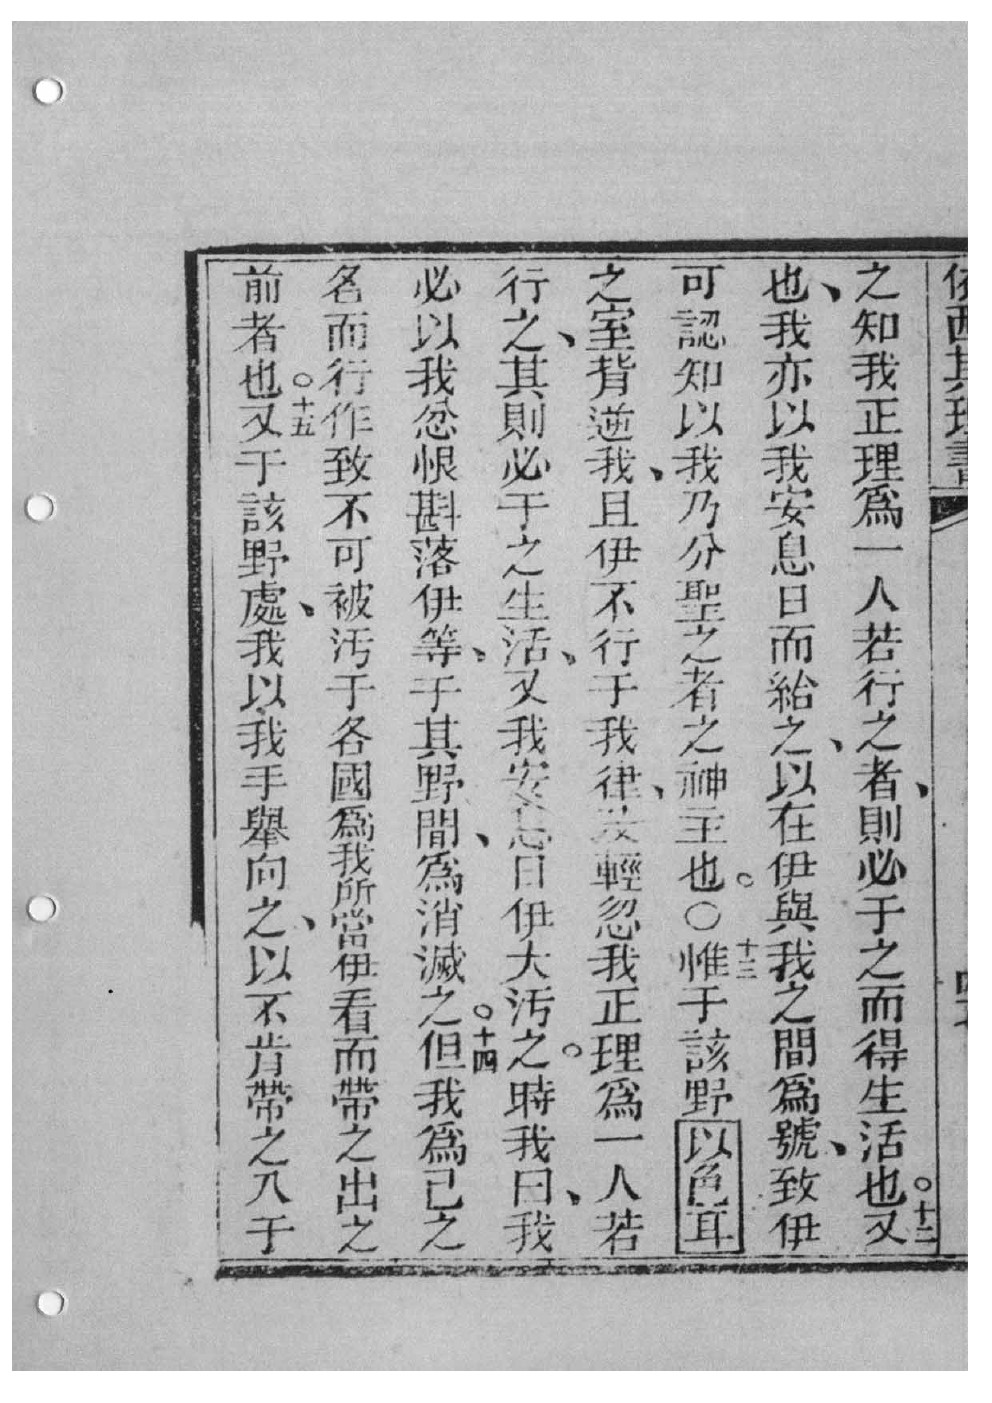 依西其理書
之知我正理爲一人若行之者、則必于之而得生活也。十二又
也、我亦以我安息日而給之、以在伊與我之間爲號、致伊
可認知以我乃分聖之者之神主也。○十三惟于該野以色耳
之室背逆我、且伊不行于我律、及輕忽我正理爲一人若
行之、其則必于之生活、又我安息日伊大汚之。時我曰、我
必以我忿恨斟落伊等、于其野間、爲消滅之。十四但我爲己之
名而行作致不可被汚于各國爲我所當伊看而帶之出之
前者也。十五又于該野處、我以我手舉向之、以不肯帶之入于